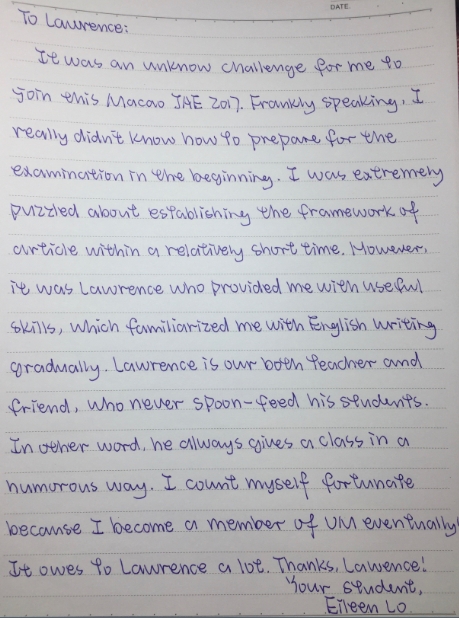 DATE
To Lawrence:
It was an unknow challenge for me to
join this Macao JAE 2017. Frankly speaking, I
really didn't know how to prepare for the
examination in the beginning. I was extremely
puzzled about establishing the framework of
article within a relatively short time. However,
it was Lawrence who provided me with useful
skills, which familiarized me with English writing
gradually. Lawrence is our both teacher and
friend, who never spoon-feed his students.
In other word, he always gives a class in a
humorous way. I count myself fortunate
because I become a member of UM eventually!
It owes to Lawrence a lot. Thanks, Lawence!
Your student,
Eileen Lo